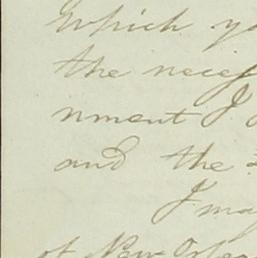 Which yo
the necess
nment I
and the
I may
of New Orlea